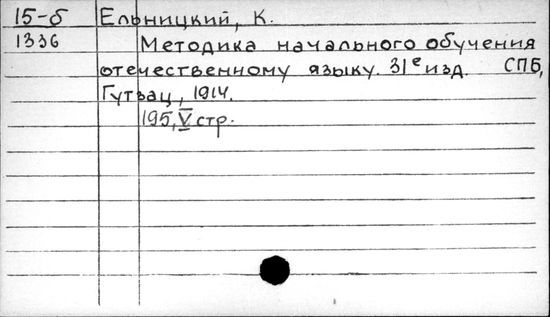 15-б Ельницкий, К.
1336 Методика начального обучения
отечественному языку. 31е изд. СПб,
Гутзац, 1914.
195, V стр.